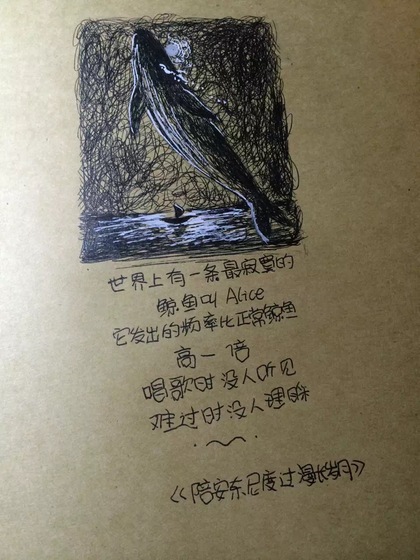 世界上有一条最寂寞的
鲸鱼叫 Alice
它发出的频率比正常鲸鱼
高一倍
唱歌时没人听见
难过时没人理睬
《陪安东尼度过漫长岁月》